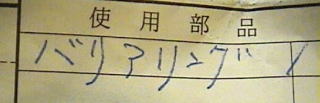 使用部品
バリアリング 1